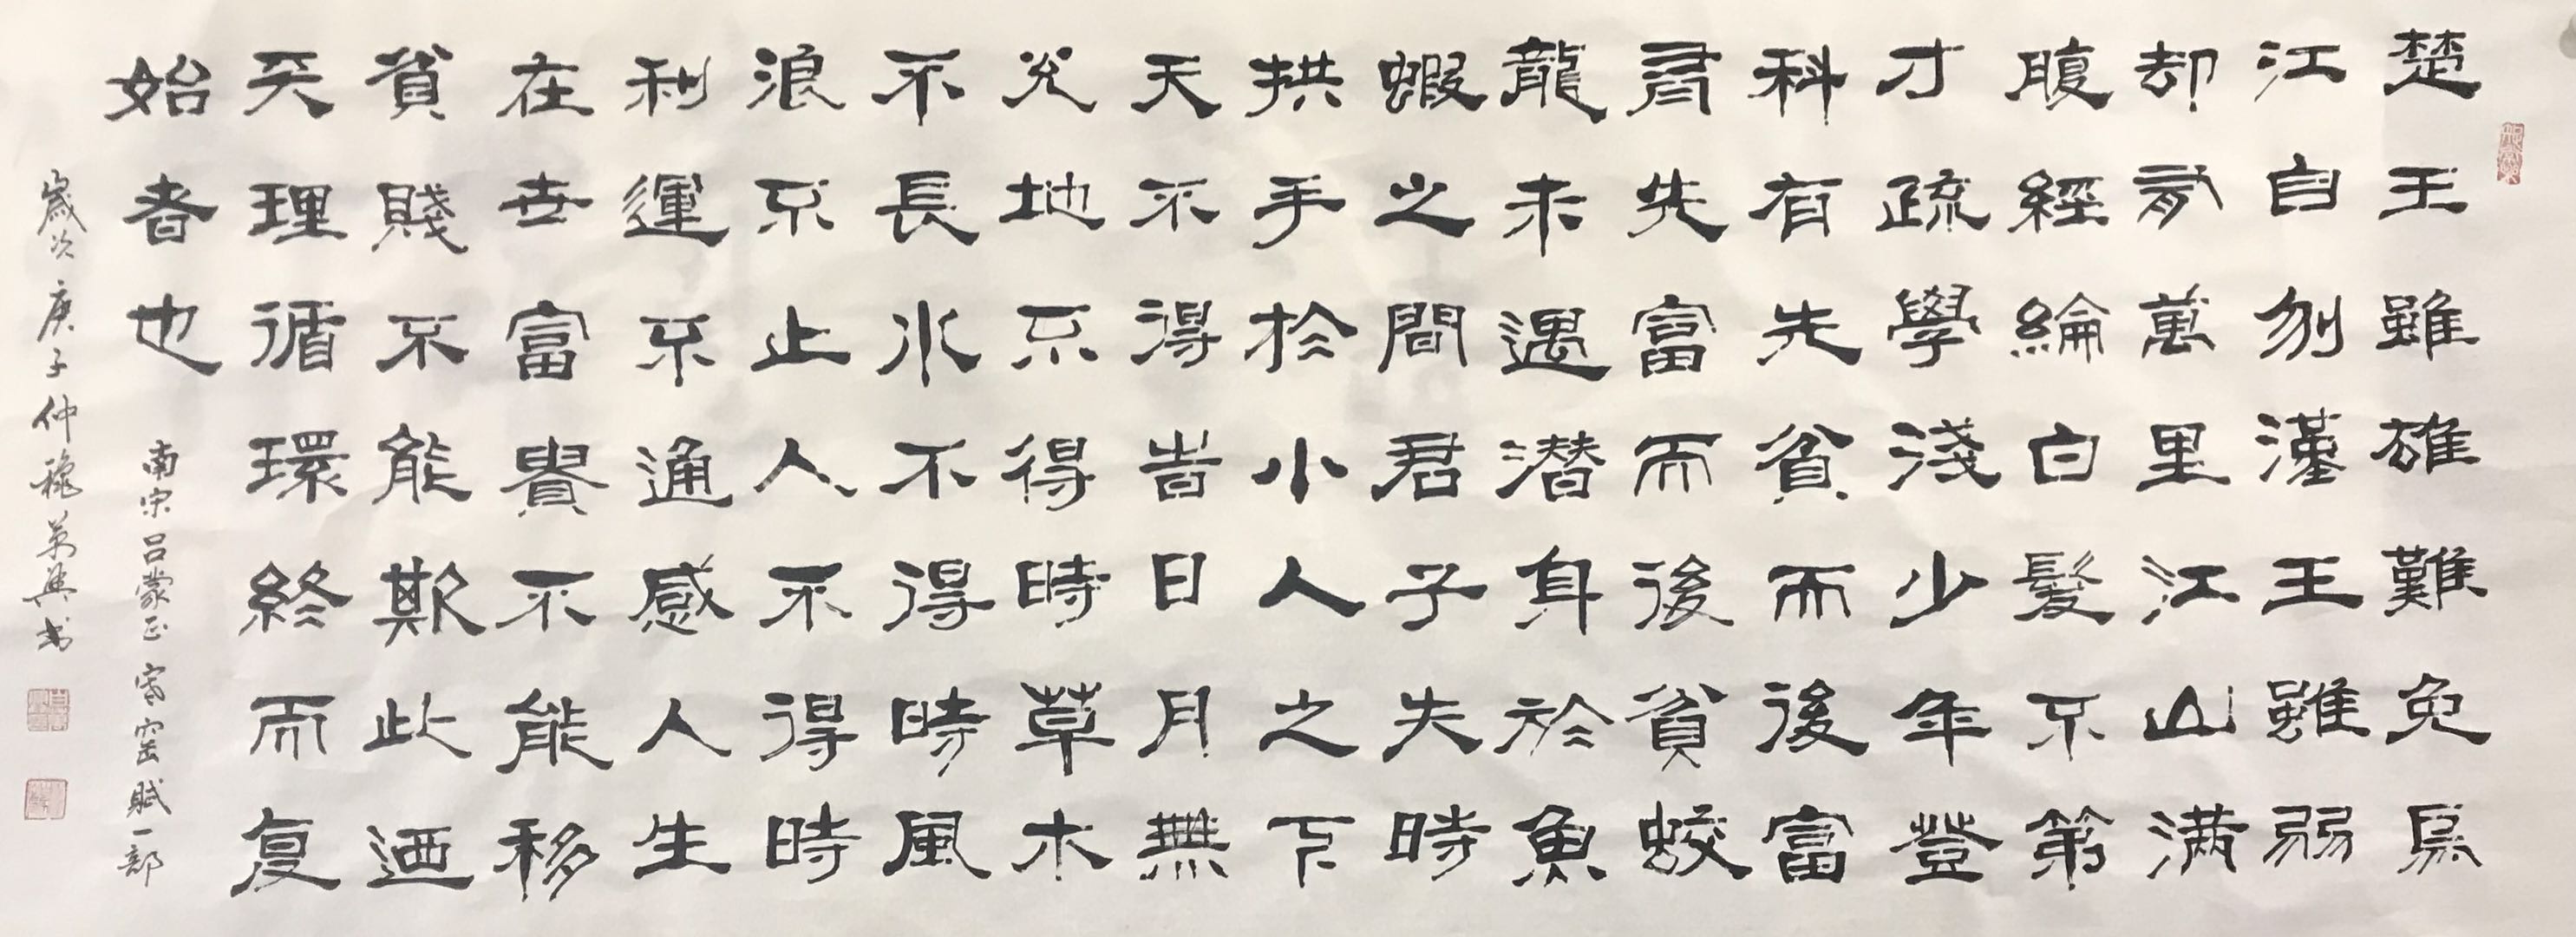 楚王雖雄難免烏
江自刎漢王雖弱
却有萬里江山满
腹經綸白髮不第
才疏學淺少年登
科有先貧而後富
有先富而後貧蛟
龍未遇潜身於魚
蝦之間君子失時
拱手於小人之下
天不得旹日月無
光地不得時草木
不長水不得時風
浪不止人不得時
利運不通感人生
在世富貴不能移
貧賤不能欺此迺
天理循環終而复
始者也
南宋吕蒙正寒窑賦一部
歲次庚子仲穐英興书